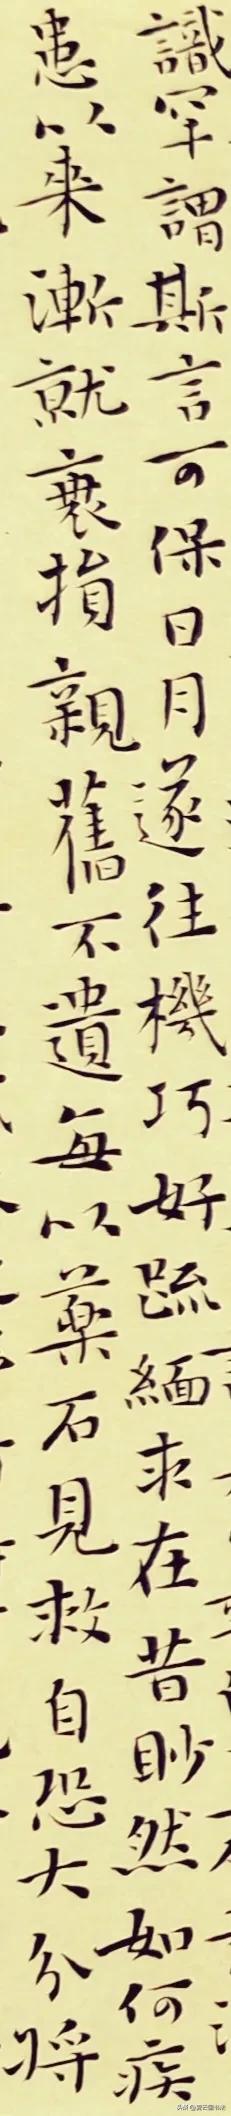 識罕謂斯言可保日月遂往機巧好疏緬求在昔眇然如何疾
患以来漸就衰損親舊不遺每以藥石見救自恐大分将